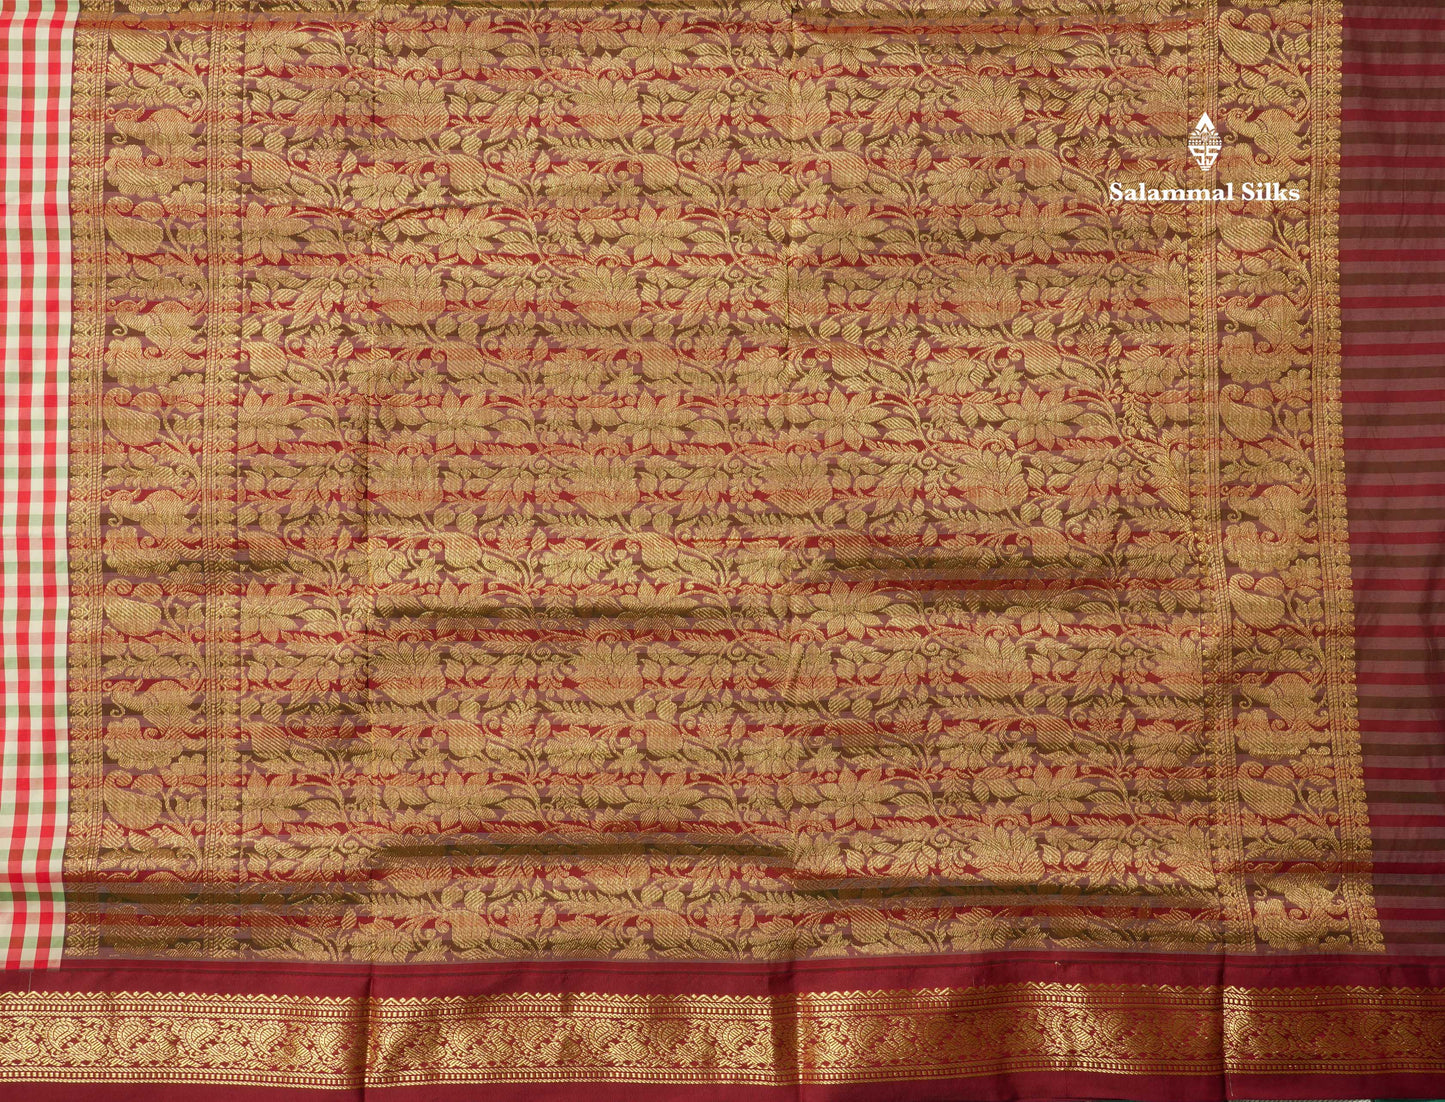 SS
Salammal Silks